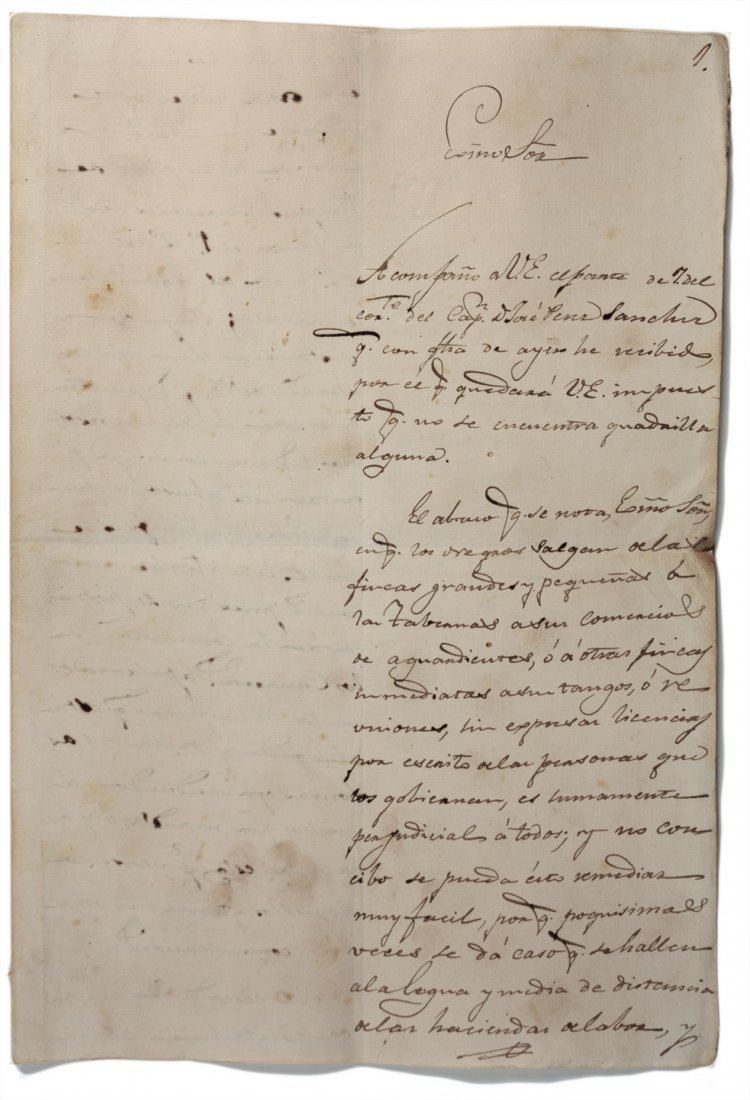 1.
Exmo Sor
Acompaño a V.E. el parte de 7. del
corte. del Capn. D José Perez Sanchez
q. con fha de ayer he recibido,
por el q. quedará V.E. impues-
to q. no se encuentra quadrilla
alguna.
El abuso q. se nota, Exmo Sor,
en q. los negros salgan de las
fincas grandes y pequeñas á
las Tabernas a sus comercios
de aguardientes, ó á otras fincas
inmediatas a sus tangos, ó re
uniones, sin expresas licencias
por escrito de las personas que
los gobiernan, es sumamente
perjudicial á todos; y no con
cibo se pueda ésto remediar
muy facil, por q. poquisimas
veces se dá caso q. se hallen
a la legua y media de distancia
de las haciendas de labor, y